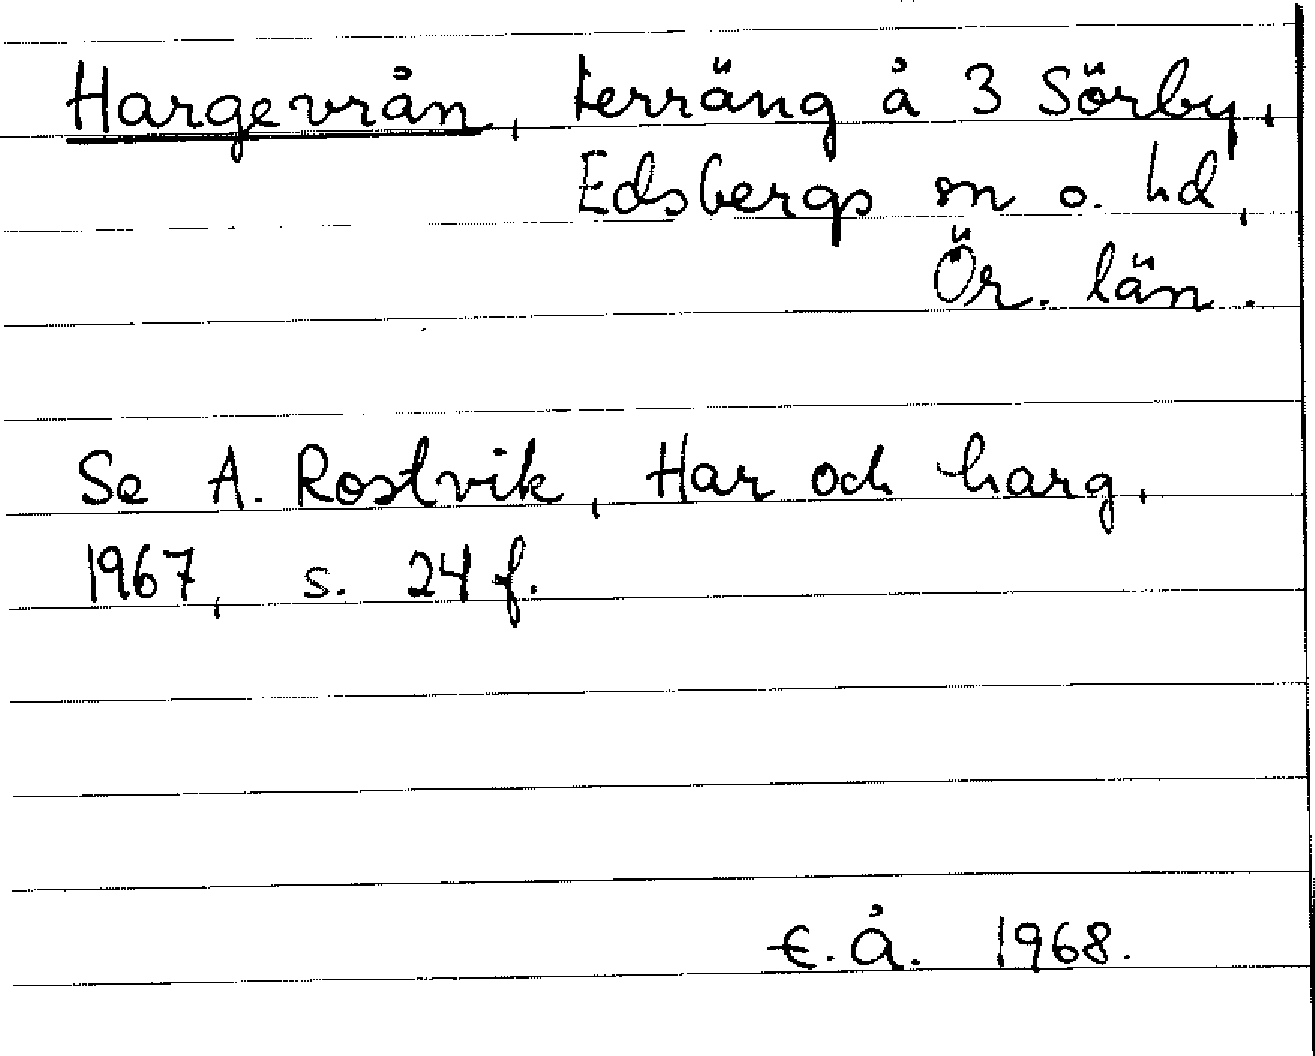 Hargevrån, terräng å 3 Sörby,
Edsbergs sn o. hd,
Ör. län.
Se A. Rostvik, Har och harg,
1967, s. 24 f.
E.Å. 1968.